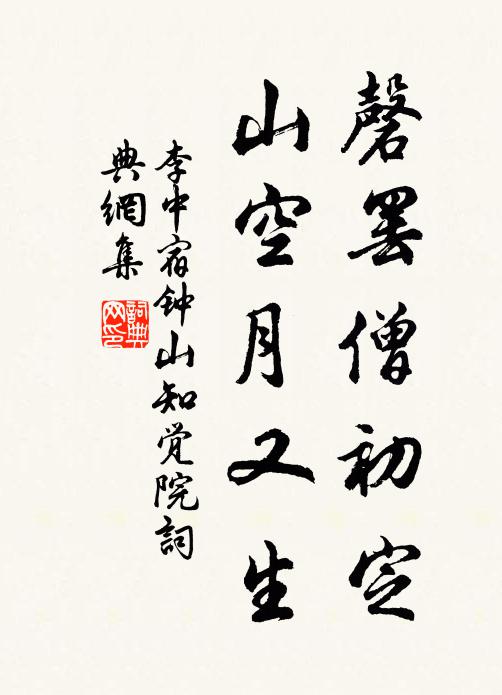 磬罷僧初定
山空月又生
李中宿钟山知觉院詞
典網集
詞典
网印